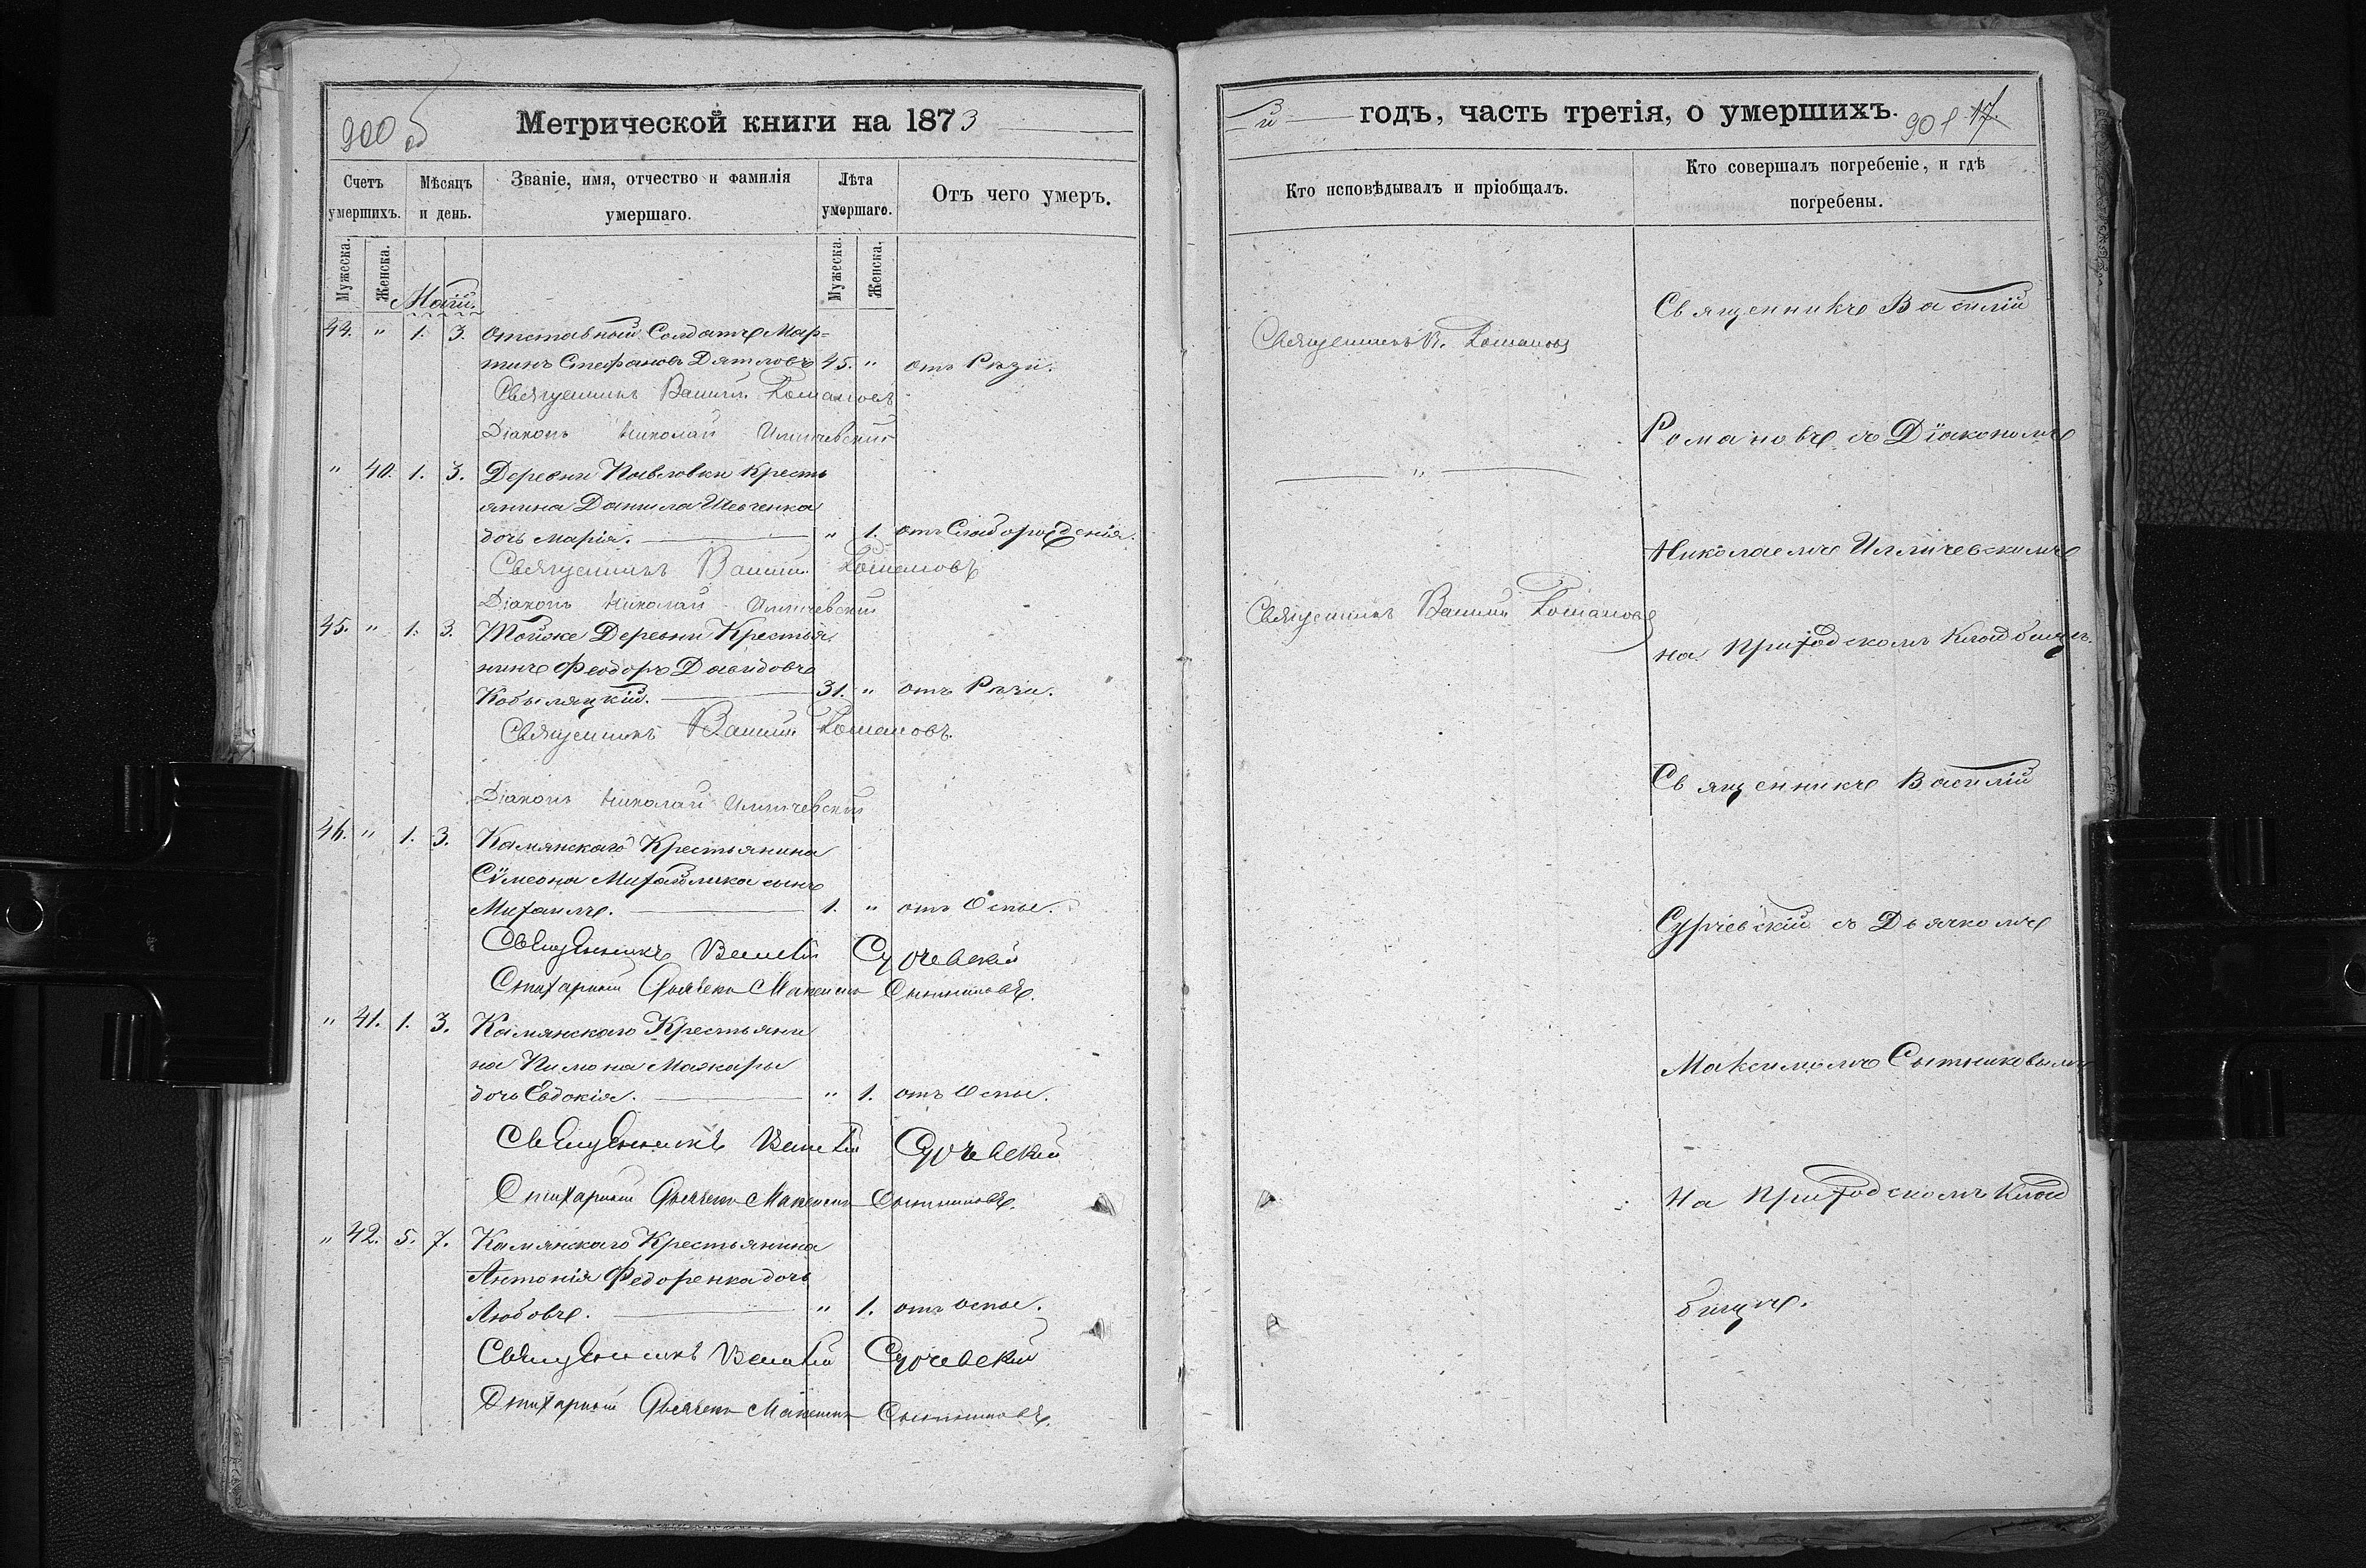 900 об
Метрической книги на 1873
Счетъ умершихъ.
Мѣсяцъ и день.
Званіе, имя, отчество и фамилія умершаго.
Лѣта умершаго.
Отъ чего умеръ.
Мужеска.
Женска.
Мужеска.
Женска.
Май.
44. " 1. 3. Отставный Солдатъ Мар-
тинъ Стефановъ Дятловъ 45. " отъ Рѣзи.
Священникъ Василій Романовъ
Діаконъ Николай Илличевскій
" 40. 1. 3. Деревни Павловки Кресть
янина Данила Шевченка
дочь Марія. " 1. отъ Слаборожденія.
Священникъ Василій Романовъ
Діаконъ Николай Илличевскій
45. " 1. 3. Тойже Деревни Крестья
нинъ Феодоръ Давидовъ
Кобыляцкій. 31. " отъ Рѣзи.
Священникъ Василій Романовъ.
Діаконъ Николай Илличевскій
46. " 1. 3. Камянскаго Крестьянина
Сѵмеона Михайлика сынъ
Михаилъ. 1. " отъ Оспы.
Священникъ Сурчевскій
Стихарный Дьячекъ Максимъ Сытниковъ.
" 41. 1. 3. Камянскаго Крестьяни
на Пимона Мажары
дочь Евдокія. " 1. отъ Оспы.
Священникъ Сурчевскій
Стихарный Дьячекъ Максимъ Сытниковъ.
" 42. 5. 7. Камянскаго Крестьянина
Антонія Федоренка дочь
Любовь. " 1. отъ оспы.
Священникъ Сурчевскій
Стихарный Дьячекъ Максимъ Сытниковъ.
3й годъ, часть третія, о умершихъ. 901 17.
Кто исповѣдывалъ и пріобщалъ.
Кто совершалъ погребеніе, и гдѣ погребены.
Священникъ В. Романовъ
"
Священникъ Василій Романовъ
Священникъ Василій
Романовъ съ Діакономъ
Николаемъ Илличевскимъ
на приходскомъ Кладбищѣ.
Священникъ Василій
Сурчевскій съ Дьячкомъ
Максимомъ Сытниковымъ
На приходскомъ клад
бищѣ.